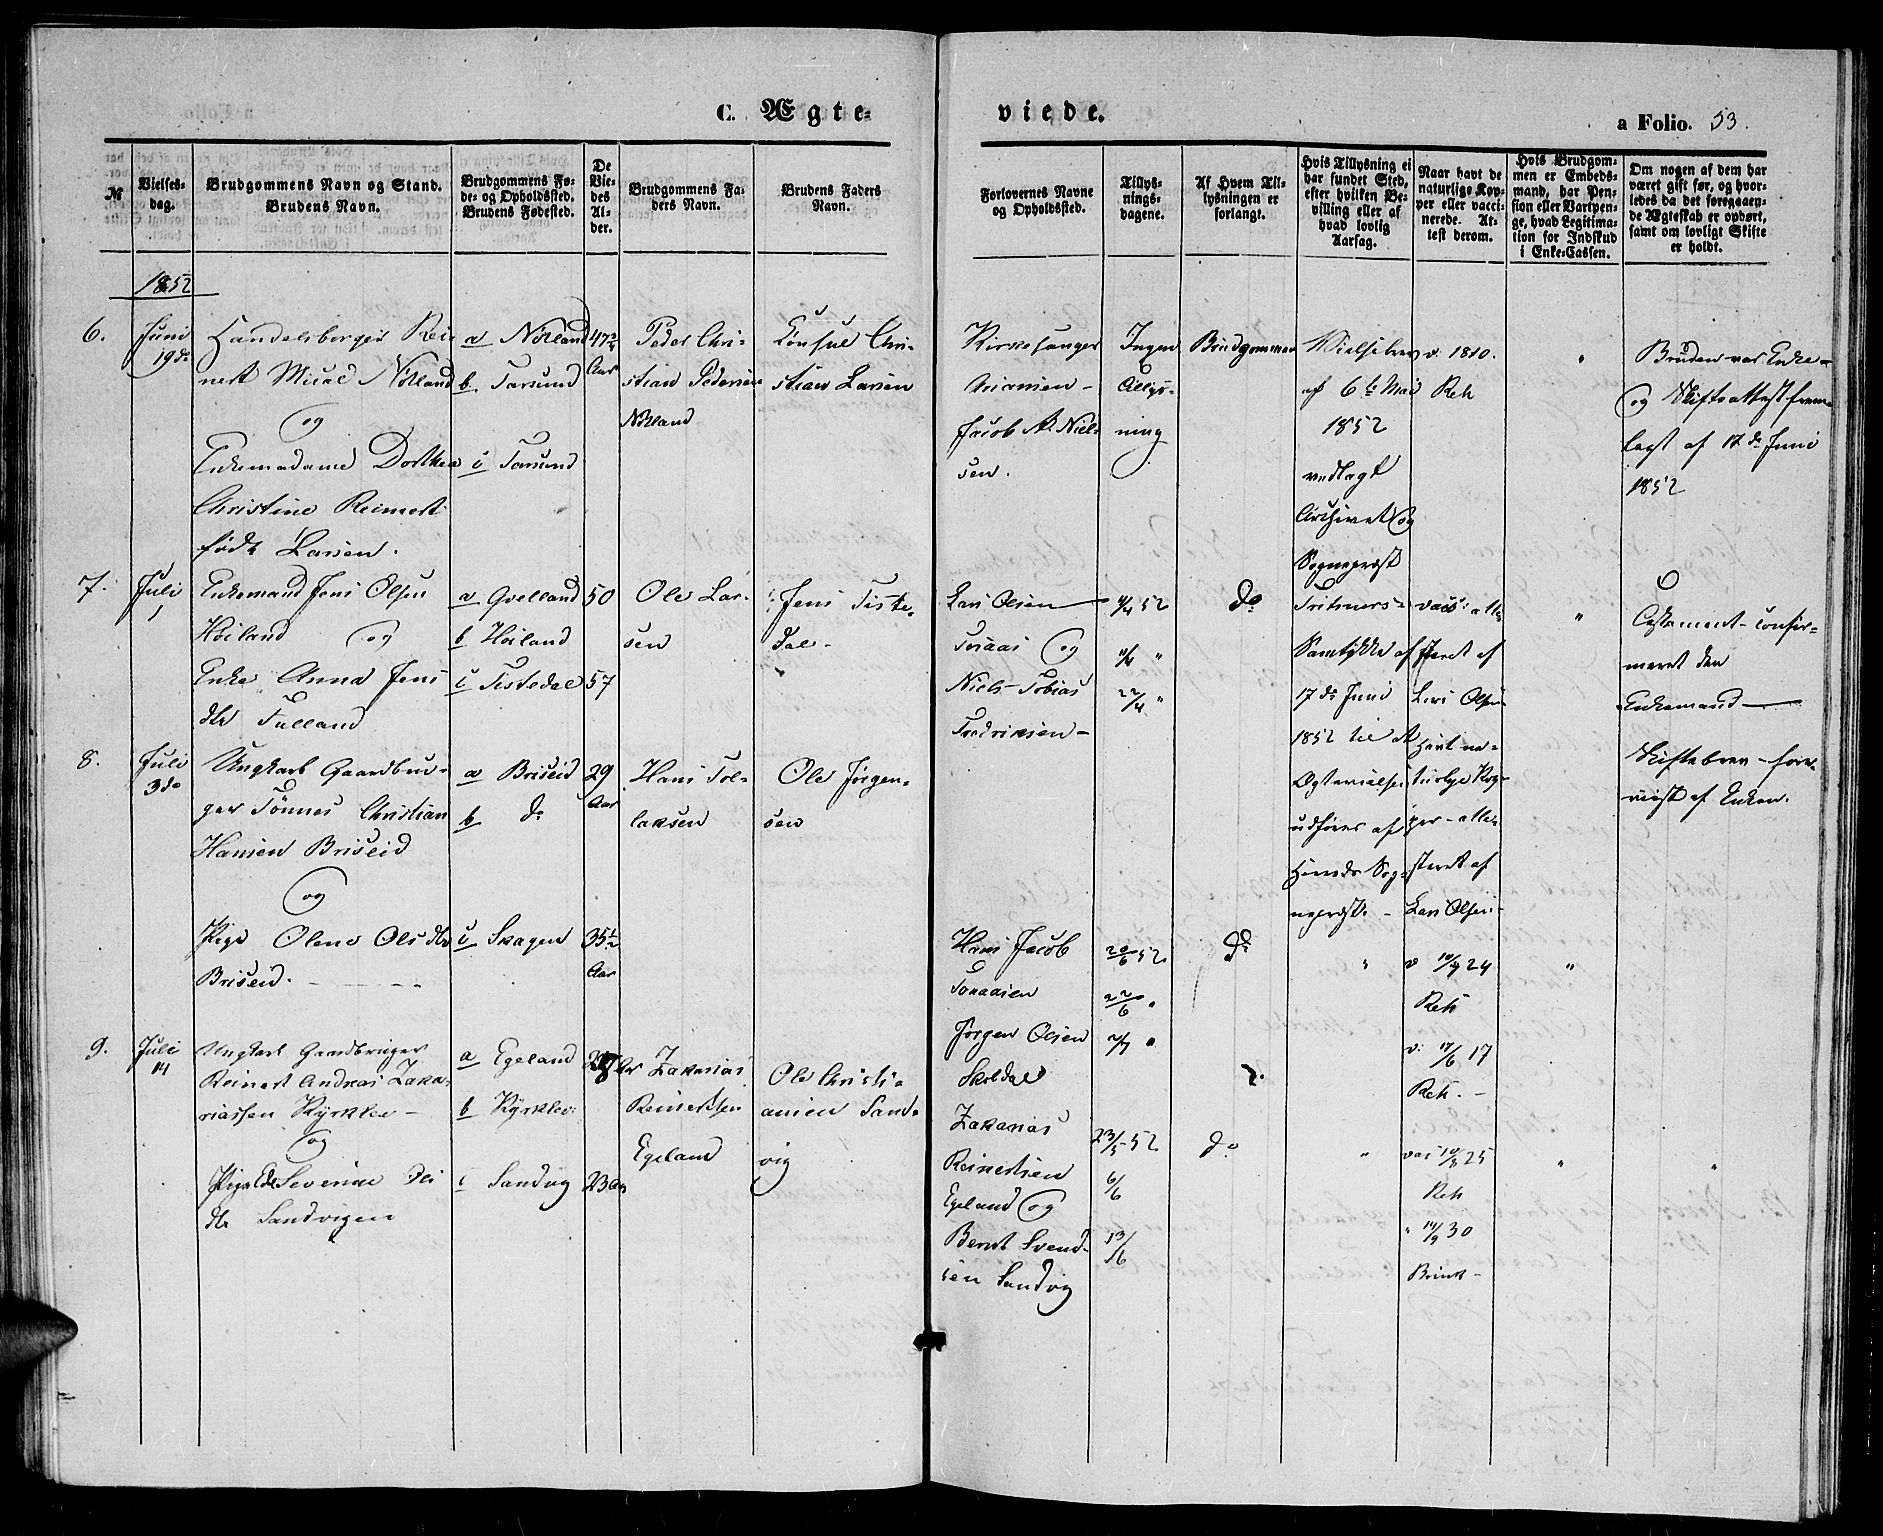 C. Ægte-
viede.
a Folio. 53.
№
Vielses-
dag.
Brudgommens Navn og Stand.
Brudens Navn.
Brudgommens Fø-
de- og Opholdssted.
Brudens Fødested.
De
Vie-
des
Al-
der.
Brudgommens Fa-
ders Navn.
Brudens Faders
Navn.
Forlovernes Navne
og Opholdssted.
Tillys-
nings-
dagene.
Af Hvem Til-
lysningen er
forlangt.
Hvis Tillysning ei
har fundet Sted,
efter hvilken Be-
villing eller af
hvad lovlig
Aarsag.
Naar havt de
naturlige Kop-
per eller vacci-
nerede. At-
test derom.
Hvis Brudgom-
men er Embeds-
mand, har Pen-
sion eller Vartpen-
ge, hvad Legitima-
tion for Indskud
i Enke-Cassen.
Om nogen af dem har
været gift før, og hvor-
ledes da det foregaaen-
de Ægteskab er ophørt,
samt om lovligt Skifte
er holdt.
1852
6.
Juni
19de
Handelsborger Rei-
nert Nøtland
og
Enkemadame Dorthea
Christine Reimert
født Larsen.
a Nøtland
b Farsund
c Farsund
47
Aar
Peder Chri-
stian Pedersen
Nøtland
Consul Chri-
stian Larsen
Kirkesanger
Ariansen -
Jacob N. Niel-
sen.
Ingen
Tillys-
ning
Brudgommen
Vielsebrev
af 6te Mai
1852
vedlagt
Archivet og
Sognepræst
v. 1810.
Reh
"
Bruden var Enke-
og Skifteattest frem-
lagt af 12de Juni
1852
7.
Juli
1
Enkemand Jens Olsen
Høiland og
Enke Anna Jens
dtr Fulland
a Qvelland
b Høiland
c Tistedal
50
57
Ole Lar-
sen
Jens Tiste-
dal -
Lars Olsen
og
Niels Tobias
Fredriksen -
4/4 52
11/4 "
22/4 "
do
Samtykke af
17de Juni
1852 til at
udføres af
Herreds Sog-
nepræst. -
vacc: atte-
steret af
Lars Olsen
havt na-
turlige Kop-
per - atte-
steret af
Lars Olsen -
"
Testament - confir-
meret den
Enkemand
Skiftebrev - fore-
viist af Enken.
8.
Juli
3de
Ungkarl Gaardbru-
ger Tønnes Christian
Hansen Briseid
og
Pige Olene Olsdtr
Briseid.
a Briseid
b do
c Skagen
29
Aar
35½
Aar
Hans Tol-
laksen
Ole Jørgen-
sen
Hans Jacob
Jørgen Olsen
Skoldal
20/6 52
22/6 "
do
"
v 24
Reh
v: 17
Reh. -
"
9.
Juli
14
Ungkarl Gaardbruger
Reinert Andreas Zaka-
riassen Kyrklev -
og
Severine Ols
dtr Sandvigen
a Egeland
b Kyrklev
c Sandvig
28 Aar
23 Aar
Zakarias
Reinertsen
Egeland
Ole Christi-
ansen Sand-
vig
Zakarias
Reinertsen
Egeland og
Bernt Svend-
sen Sandvig
23/5 52
6/6
13/6
do
"
vac 10/8 25
Reh
" 14/9 30
Brink -
"
"